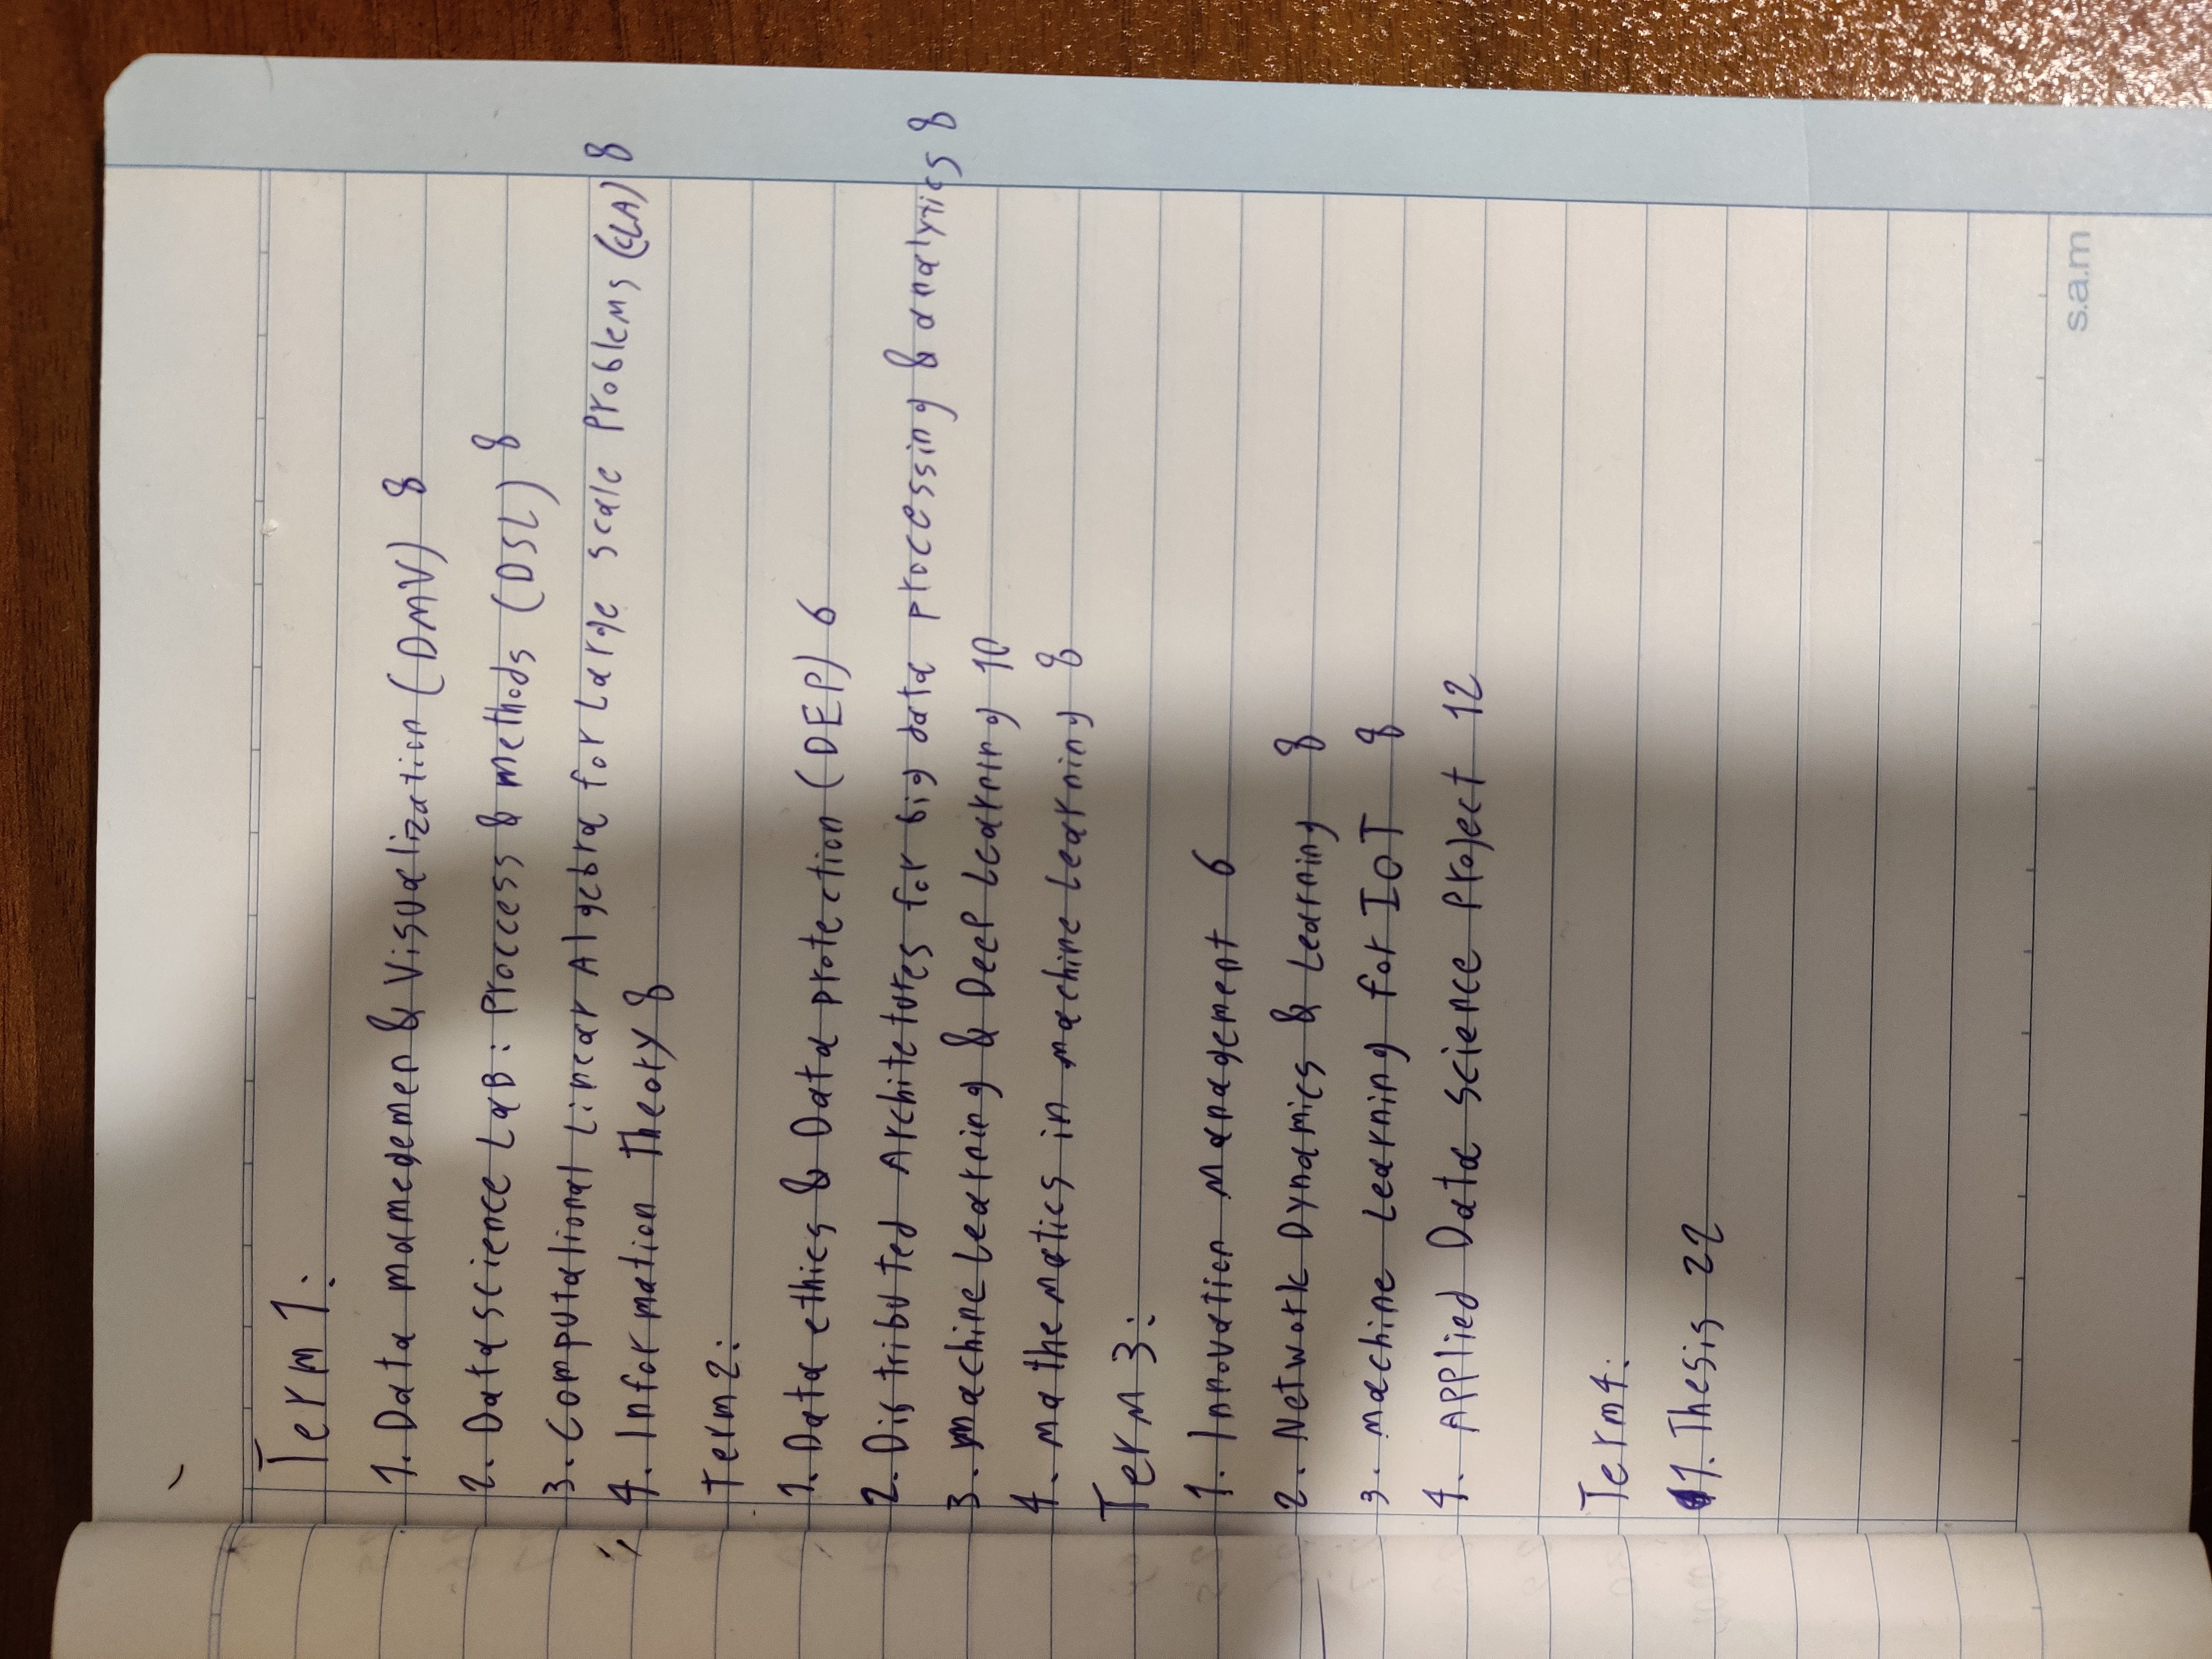 Term 1:
1. Data mamedemen & Visualization (DMV) 8
2. Data science LaB: Proccess & methods (DSL) 8
3. Computational Linear Algebra for Large scale Problems (CLA) 8
4. Information Theory 8
Term 2:
1. Data ethics & Data protection (DEP) 6
2. Distributed Architetures for big data processing & analytics 8
3. machine Learning & Deep Learning 10
4. mathematics in machine Learning 8
Term 3:
1. Innovation Management 6
2. Network Dynamics & Learning 8
3. machine Learning for IoT 8
4. Applied Data science Project 12
Term 4:
1. Thesis 22
s.a.m